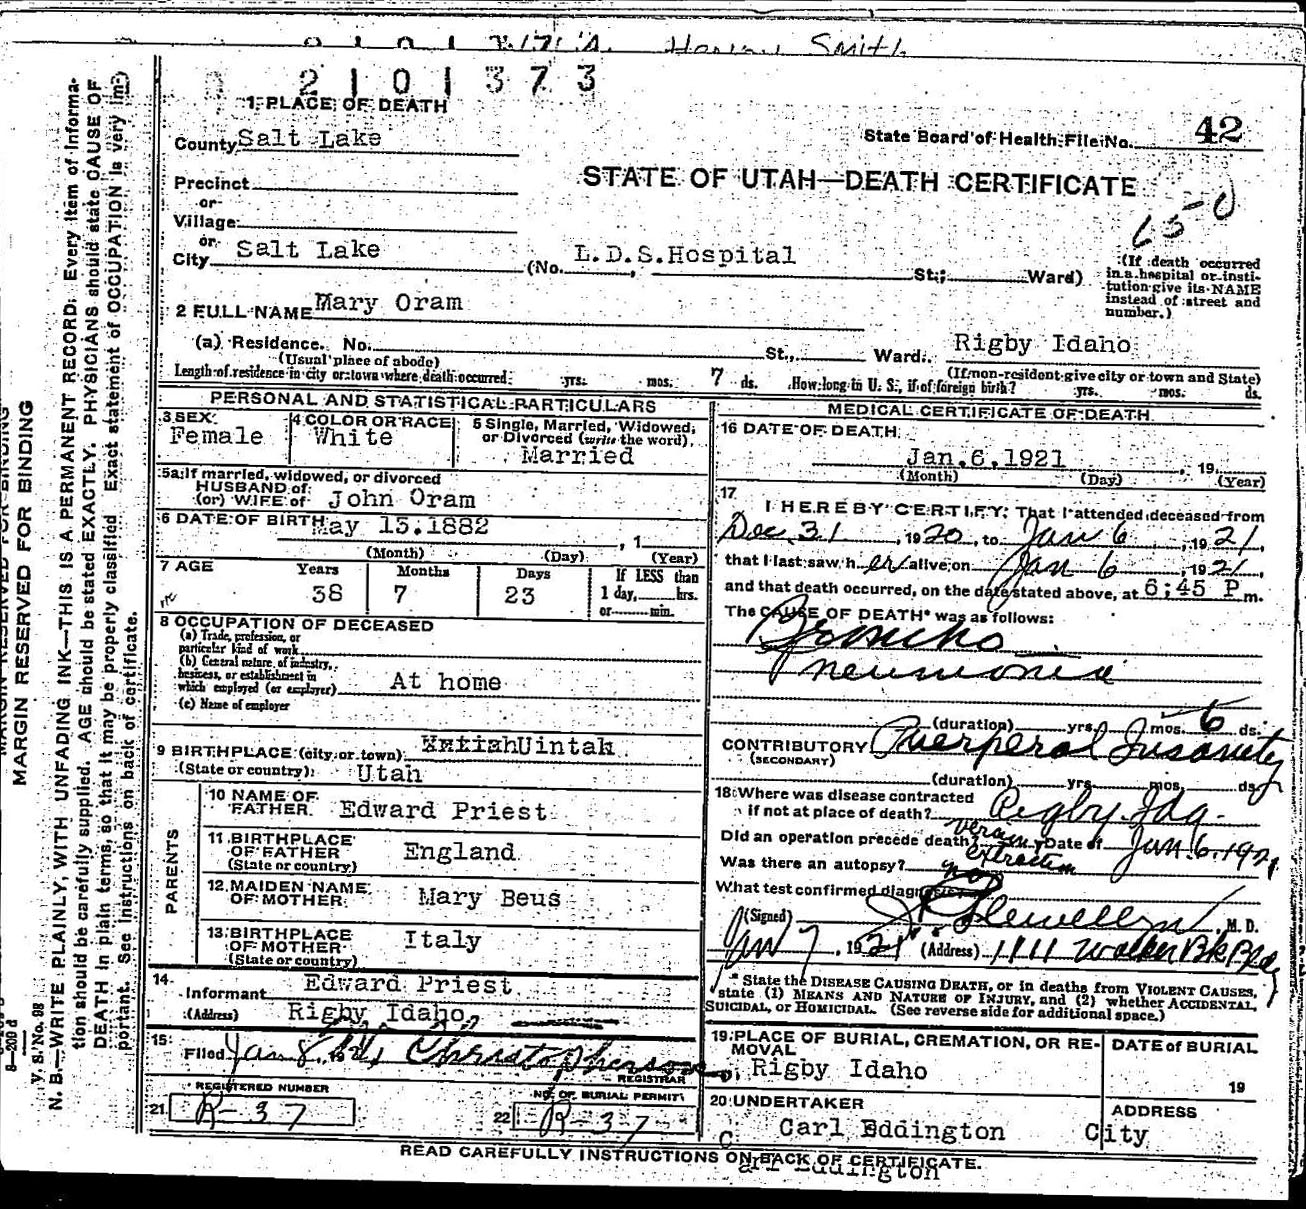 Henry Smith
2101373
1 PLACE OF DEATH
County Salt Lake
State Board of Health File No. 42
Precinct
or
Village
or
City Salt Lake
STATE OF UTAH—DEATH CERTIFICATE
650
(No. L.D.S.Hospital St.; Ward)
(If death occurred in a hospital or institution give its NAME instead of street and number.)
2 FULL NAME Mary Oram
(a) Residence. No. St., Ward. Rigby Idaho
(Usual place of abode) (If non-resident give city or town and State)
Length of residence in city or town where death occurred yrs. mos. 7 ds. How long in U. S., if of foreign birth? yrs. mos. ds.
PERSONAL AND STATISTICAL PARTICULARS
3 SEX Female
4 COLOR OR RACE White
5 Single, Married, Widowed, or Divorced (write the word). Married
5a If married, widowed, or divorced
HUSBAND of
(or) WIFE of John Oram
6 DATE OF BIRTH May 15.1882 , 1
(Month) (Day) (Year)
7 AGE Years Months Days If LESS than
38 7 23 1 day, hrs.
or min.
8 OCCUPATION OF DECEASED
(a) Trade, profession, or
particular kind of work
(b) General nature of industry,
business, or establishment in
which employed (or employer) At home
(c) Name of employer
9 BIRTHPLACE (city or town) Uintah
(State or country) Utah
PARENTS
10 NAME OF FATHER Edward Priest
11 BIRTHPLACE OF FATHER England
(State or country)
12 MAIDEN NAME OF MOTHER Mary Beus
13 BIRTHPLACE OF MOTHER Italy
(State or country)
14
Informant Edward Priest
(Address) Rigby Idaho
15
Filed Jan 8, Christopherson
REGISTRAR
REGISTERED NUMBER NO. OF BURIAL PERMIT
21 R-37 22 R-37
MEDICAL CERTIFICATE OF DEATH
16 DATE OF DEATH
Jan.6.1921 , 19
(Month) (Day) (Year)
17
I HEREBY CERTIFY, That I attended deceased from
Dec. 31, 1920, to Jan 6, 1921,
that I last saw her alive on Jan 6, 1921,
and that death occurred, on the date stated above, at 6:45 P m.
The CAUSE OF DEATH* was as follows:
Broncho
Pneumonia
(duration) yrs. mos. 6 ds.
CONTRIBUTORY Puerperal Insanity
(SECONDARY)
(duration) yrs. mos. ds.
18 Where was disease contracted
if not at place of death? Rigby. Ida.
Did an operation precede death? version extraction Date of Jan. 6. 1921
Was there an autopsy? no
What test confirmed diagnosis?
(Signed) Llewellyn, M. D.
Jan 7, 1921 (Address) 1111 Walker Bk Bldg
* State the DISEASE CAUSING DEATH, or in deaths from VIOLENT CAUSES,
state (1) MEANS AND NATURE OF INJURY, and (2) whether ACCIDENTAL,
SUICIDAL, or HOMICIDAL. (See reverse side for additional space.)
19 PLACE OF BURIAL, CREMATION, OR REMOVAL DATE of BURIAL
Rigby Idaho 19
20 UNDERTAKER ADDRESS
Carl Eddington City
READ CAREFULLY INSTRUCTIONS ON BACK OF CERTIFICATE.
Carl Eddington
MARGIN RESERVED FOR BINDING
MARGIN RESERVED FOR BINDING
V. S. No. 98
N. B.—WRITE PLAINLY, WITH UNFADING INK—THIS IS A PERMANENT RECORD. Every item of information should be carefully supplied. AGE should be stated EXACTLY. PHYSICIANS should state CAUSE OF DEATH in plain terms, so that it may be properly classified. Exact statement of OCCUPATION is very important. See instructions on back of certificate.